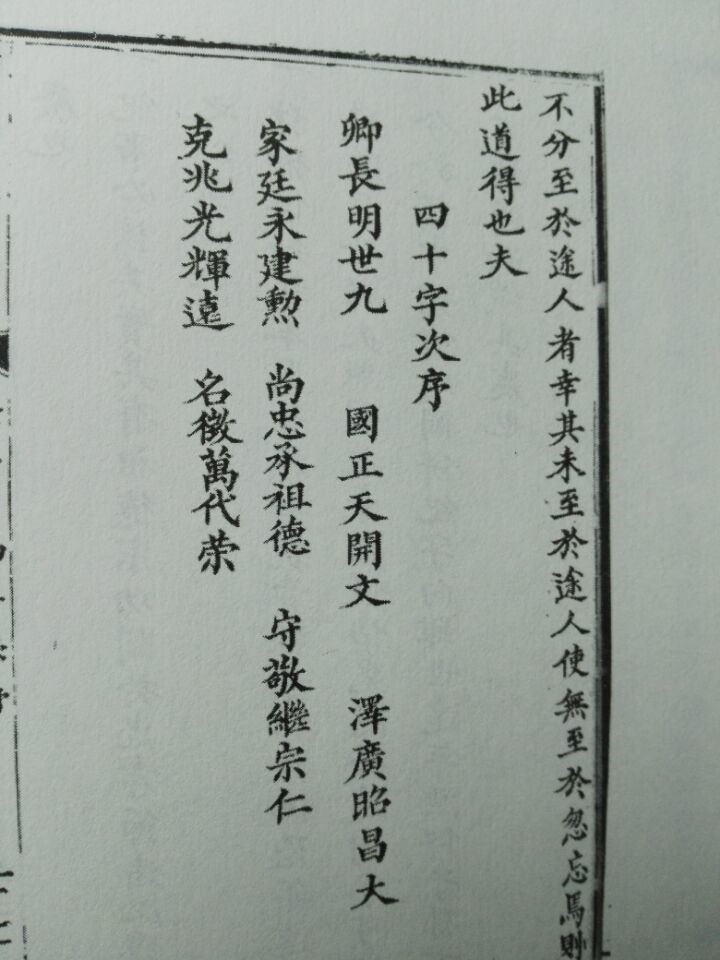 不分至於途人者幸其未至於途人使無至於忽忘焉則
此道得也夫
四十字次序
卿長明世九　國正天開文　澤廣昭昌大
家廷永建勲　尚忠承祖德　守敬繼宗仁
克兆光輝遠　名徵萬代荣